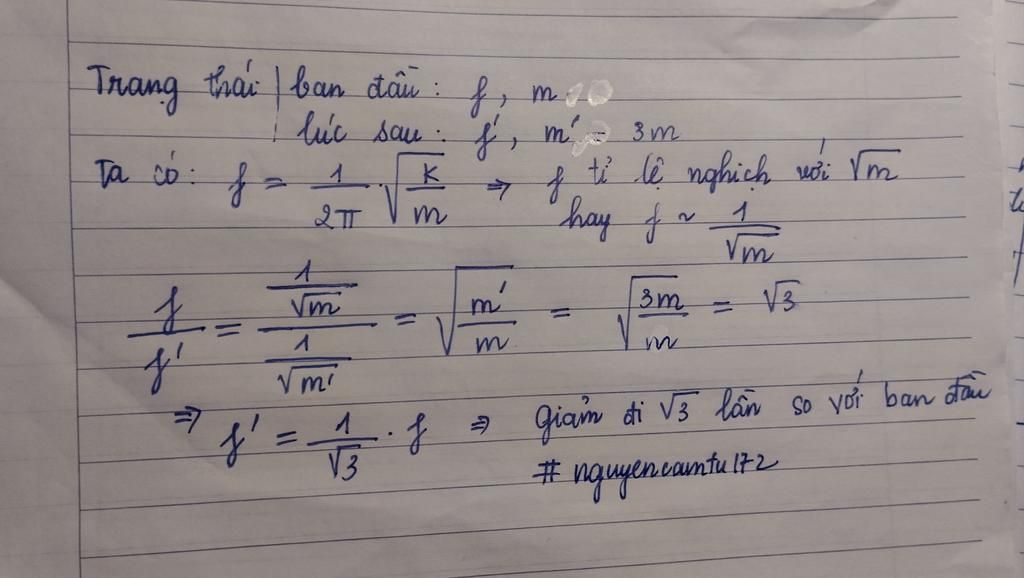 Trạng thái | ban đầu: f, m
lúc sau: f', m' = 3m
Ta có: f = 1/2π · √(k/m) ⇒ f tỉ lệ nghịch với √m
hay f ~ 1/√m
f/f' = (1/√m)/(1/√m') = √(m'/m) = √(3m/m) = √3
⇒ f' = 1/√3 · f ⇒ Giảm đi √3 lần so với ban đầu
#nguyencamtu172